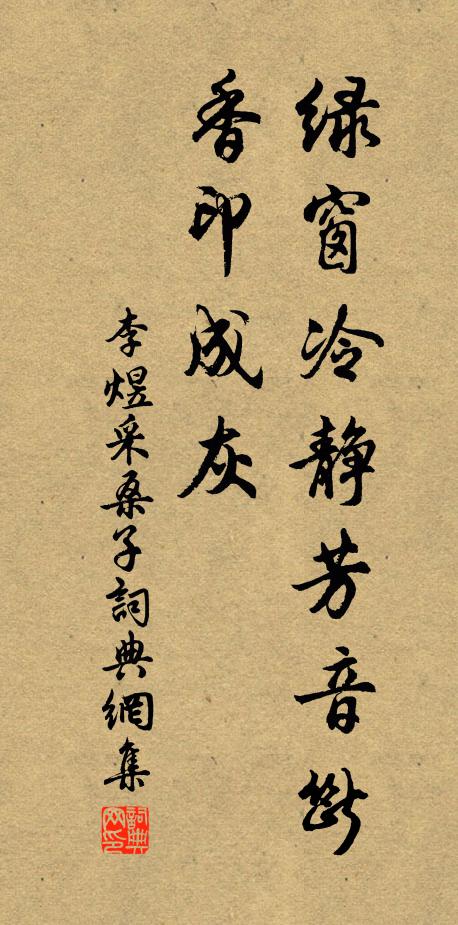 绿窗冷静芳音断
香印成灰
李煜采桑子詞典網集
詞典网印